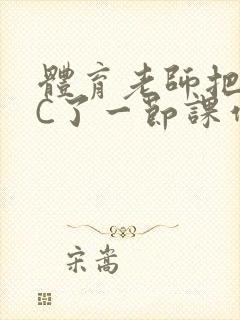 體育老師把
C了一節課作
宋嵩